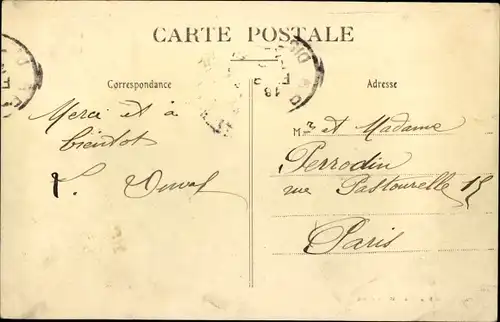 CARTE POSTALE
Correspondance
Adresse
Merci et à
bientôt
Mr et Madame
Perrodin
rue Pastourelle 15
Paris